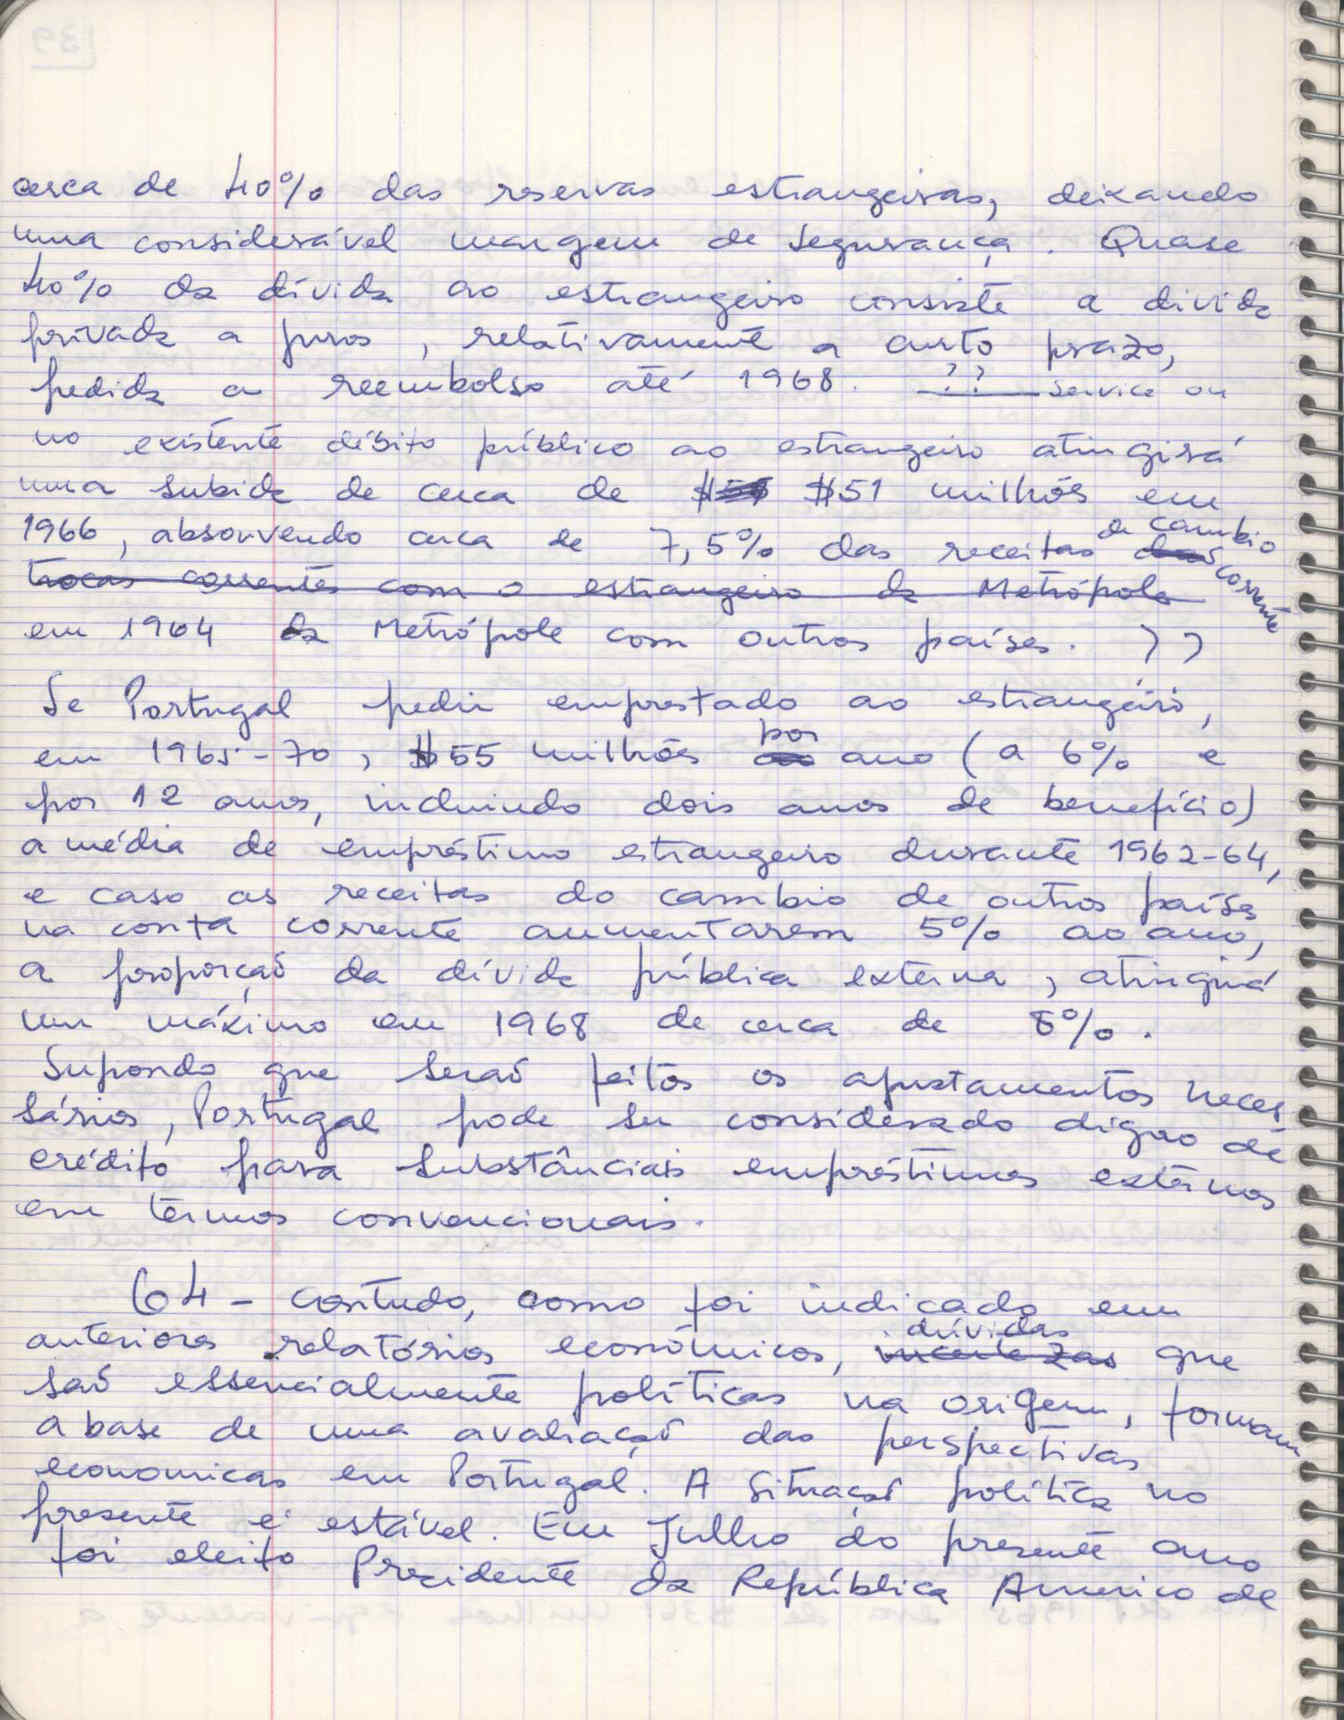 cerca de 40% das reservas estrangeiras, deixando
uma considerável margem de segurança. Quase
40% da dívida ao estrangeiro consiste a divida
privada a juros, relativamente a curto prazo,
pedida a reembolso até 1968. ?? service ou
no existente débito público ao estrangeiro atingirá
uma subida de cerca de $51 milhões em
1966, absorvendo cerca de 7,5% das receitas de cambio corrente
trocas correntes com o estrangeiro da Metrópole
em 1964 da Metrópole com outros países. ))
Se Portugal pedir emprestado ao estrangeiro,
em 1965-70, $55 milhões por ano (a 6% e
por 12 anos, incluindo dois anos de benefício)
a média de empréstimo estrangeiro durante 1962-64,
e caso as receitas do cambio de outros países
na conta corrente aumentarem 5% ao ano,
a proporção da dívida pública externa, atingirá
um máximo em 1968 de cerca de 8%.
Supondo que serão feitos os ajustamentos neces
sários, Portugal pode ser considerado digno de
crédito para substânciais empréstimos externos
em termos convencionais.
64 - Contudo, como foi indicado em
anteriores relatórios económicos, incertezas dúvidas que
são essencialmente políticas na origem, formam
a base de uma avaliação das perspectivas
economicas em Portugal. A situação política no
presente é estável. Em Julho do presente ano
foi eleito Presidente da República Americo de